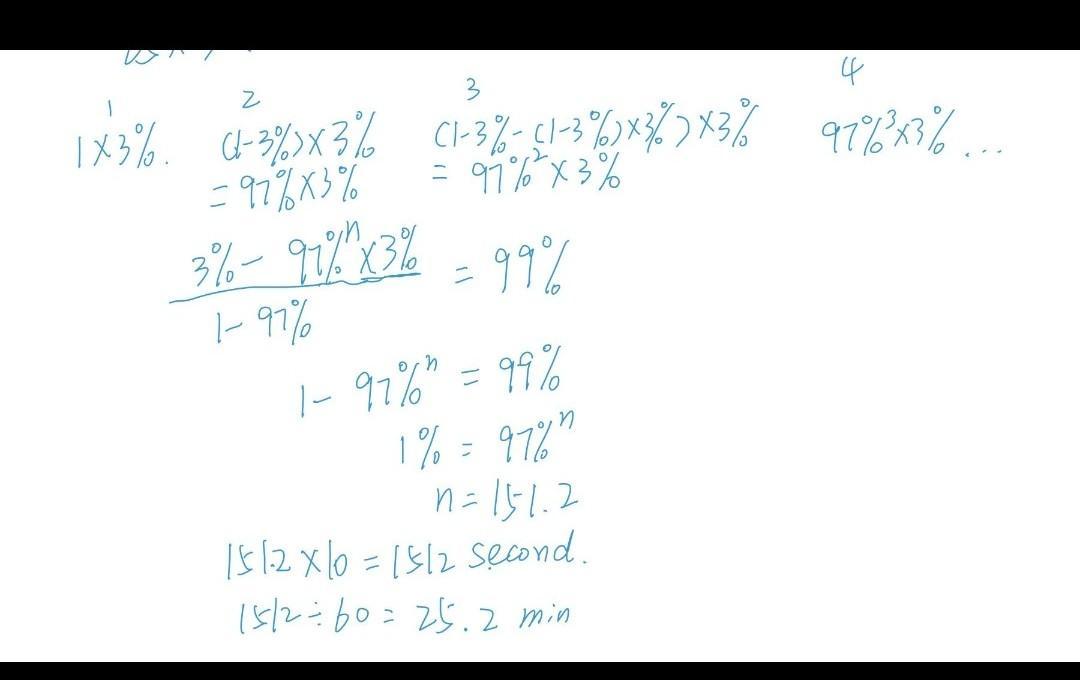 1 2 3 4
1×3%. (1-3%)×3% (1-3%-(1-3%)×3%)×3% 97%³×3% ...
=97%×3% = 97%²×3%
3%- 97%ⁿ×3% = 99%
1- 97%
1- 97%ⁿ = 99%
1% = 97%ⁿ
n=151.2
151.2×10=1512 second.
1512÷60=25.2 min